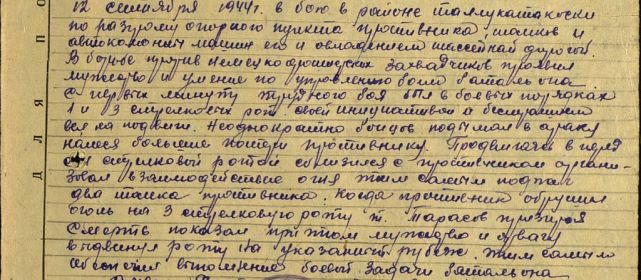 12 сентября 1944г. в бою в районе
по разгрому опорного пункта противника, танков и
автоколонны машин его и овладением шоссейной дорогой.
В борьбе против немецко фрошистских захватчиков проявил
мужество и умение по управлению боем батальона
с первых минут трудного боя был в боевых порядках
1 и 3 стрелковых рот. своей инициативой и бесстрашием
вел на подвиги. Неоднократно бойцов подымал в атаку
нанося большие потери противнику. Продвигаясь в перед
с стрелковой ротой сблизился с противником органи-
зовал взаимодействие огня тем самым поджог
два танка противника. Когда противник обрушил
огонь на 3 стрелковую роту т. Тарасов презирая
смерть показал при этом мужество и отвагу
выдвинул роту на указанный рубеж. тем самым
обеспечил выполнение боевой задачи батальона
Д Л Я П О